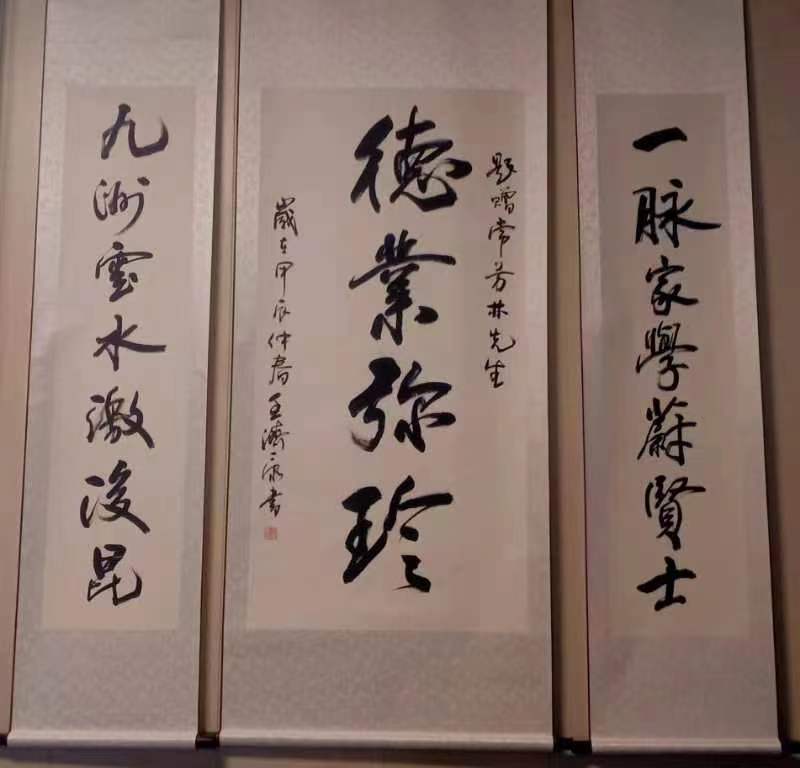 一脉家學蔚賢士
題贈常芳林先生
德業弥珍
歲在甲辰仲春王濟書
九洲雲水激後昆